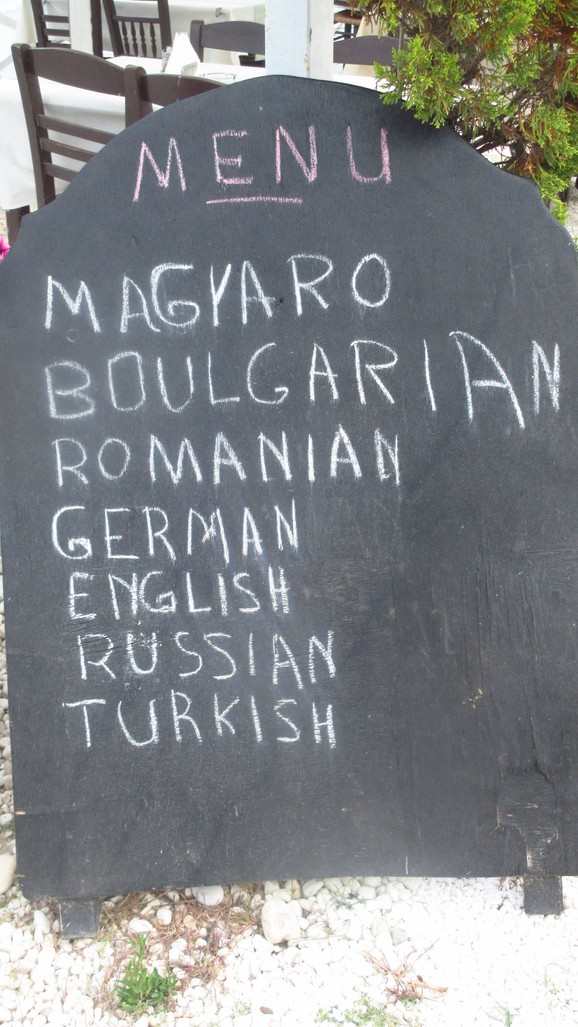 MENU
MAGYARO
BOULGARIAN
ROMANIAN
GERMAN
ENGLISH
RUSSIAN
TURKISH